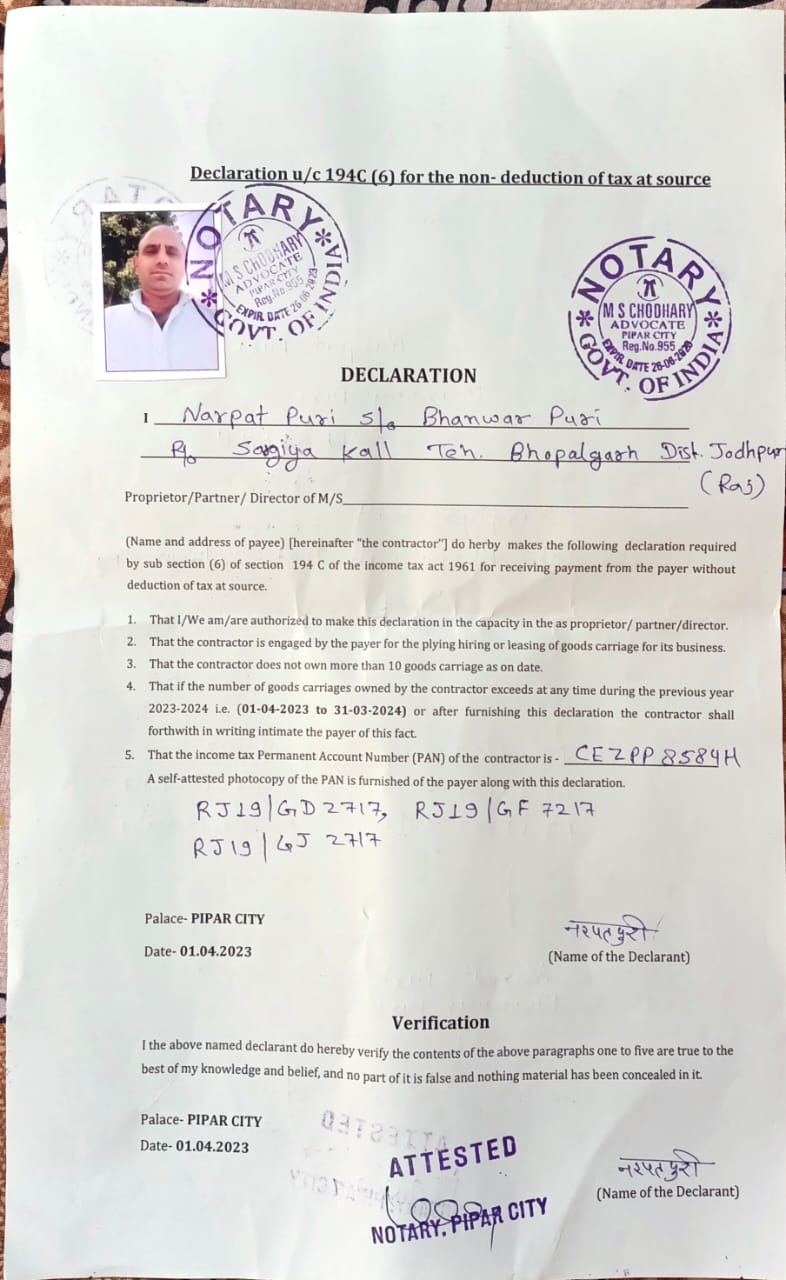 Declaration u/c 194C (6) for the non- deduction of tax at source
NOTARY
M S CHODHARY
ADVOCATE
PIPAR CITY
Reg.No.955
EXPIR. DATE 26-06-2023
GOVT. OF INDIA
NOTARY
M S CHODHARY
ADVOCATE
PIPAR CITY
Reg.No.955
EXPIR. DATE 26-06-2023
GOVT. OF INDIA
DECLARATION
I Narpat Puri s/o Bhanwar Puri
R/o Sargiya Kall Teh. Bhopalgarh Dist. Jodhpur
(Raj)
Proprietor/Partner/ Director of M/S
(Name and address of payee) [hereinafter "the contractor"] do herby makes the following declaration required
by sub section (6) of section 194 C of the income tax act 1961 for receiving payment from the payer without
deduction of tax at source.
1. That I/We am/are authorized to make this declaration in the capacity in the as proprietor/ partner/director.
2. That the contractor is engaged by the payer for the plying hiring or leasing of goods carriage for its business.
3. That the contractor does not own more than 10 goods carriage as on date.
4. That if the number of goods carriages owned by the contractor exceeds at any time during the previous year
2023-2024 i.e. (01-04-2023 to 31-03-2024) or after furnishing this declaration the contractor shall
forthwith in writing intimate the payer of this fact.
5. That the income tax Permanent Account Number (PAN) of the contractor is - CEZPP8584H
A self-attested photocopy of the PAN is furnished of the payer along with this declaration.
RJ19/GD2717, RJ19/GF 7217
RJ19/GJ 2717
Palace- PIPAR CITY
Date- 01.04.2023
नरपत पुरी
(Name of the Declarant)
Verification
I the above named declarant do hereby verify the contents of the above paragraphs one to five are true to the
best of my knowledge and belief, and no part of it is false and nothing material has been concealed in it.
Palace- PIPAR CITY
Date- 01.04.2023
ATTESTED
NOTARY, PIPAR CITY
नरपत पुरी
(Name of the Declarant)